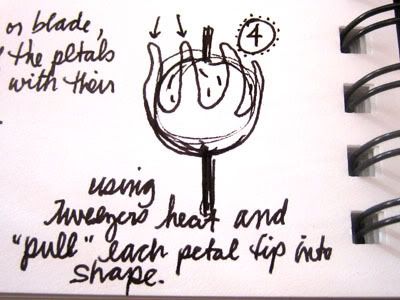 or blade,
the petals
with their
4
using
tweezers heat and
"pull" each petal tip into
shape.